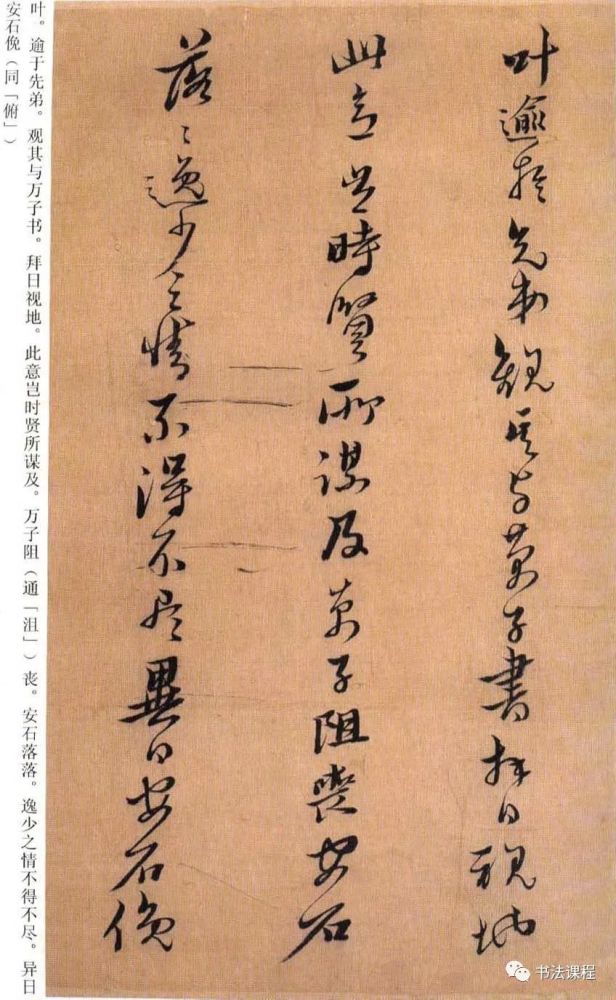 叶逾於先弟觀其与萬子書拜日視地
此意豈時賢所謀及萬子阻喪安石
落〻逸少之情不得不尽異日安石俛
叶。逾于先弟。观其与万子书。拜日视地。此意岂时贤所谋及。万子阻（通「沮」）丧。安石落落。逸少之情不得不尽。异日
安石俛（同「俯」）
书法课程